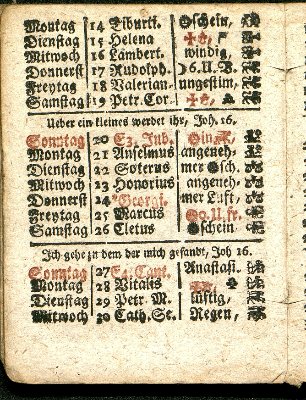 Montag 14 Tiburti. Oschein,
Dienstag 15 Helena
Mitwoch 16 Lambert. windig,
Donnerst 17 Rudolph.
Freytag 18 Valerian. ungestim,
Samstag 19 Petr. Cor.
Ueber ein kleines werdet ihr, Joh. 16.
Sonntag 20 E3. Jub.
Montag 21 Anselmus angeneh-
Dienstag 22 Soterus mer Osch.
Mitwoch 23 Honorius angeneh-
Donnerst 24 Georgi. mer Luft,
Freytag 25 Marcus
Samstag 26 Cletus Oschein
Ich gehe zu dem der mich gesandt, Joh 16.
Sonntag 27 E4. Cant. Anastasi.
Montag 28 Vitalis
Dienstag 29 Petr. M. lüftig,
Mittwoch 30 Cath. Se. Regen,